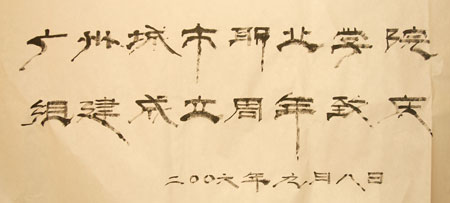 广州城市职业学院
组建成立周年致庆
二〇〇六年九月八日